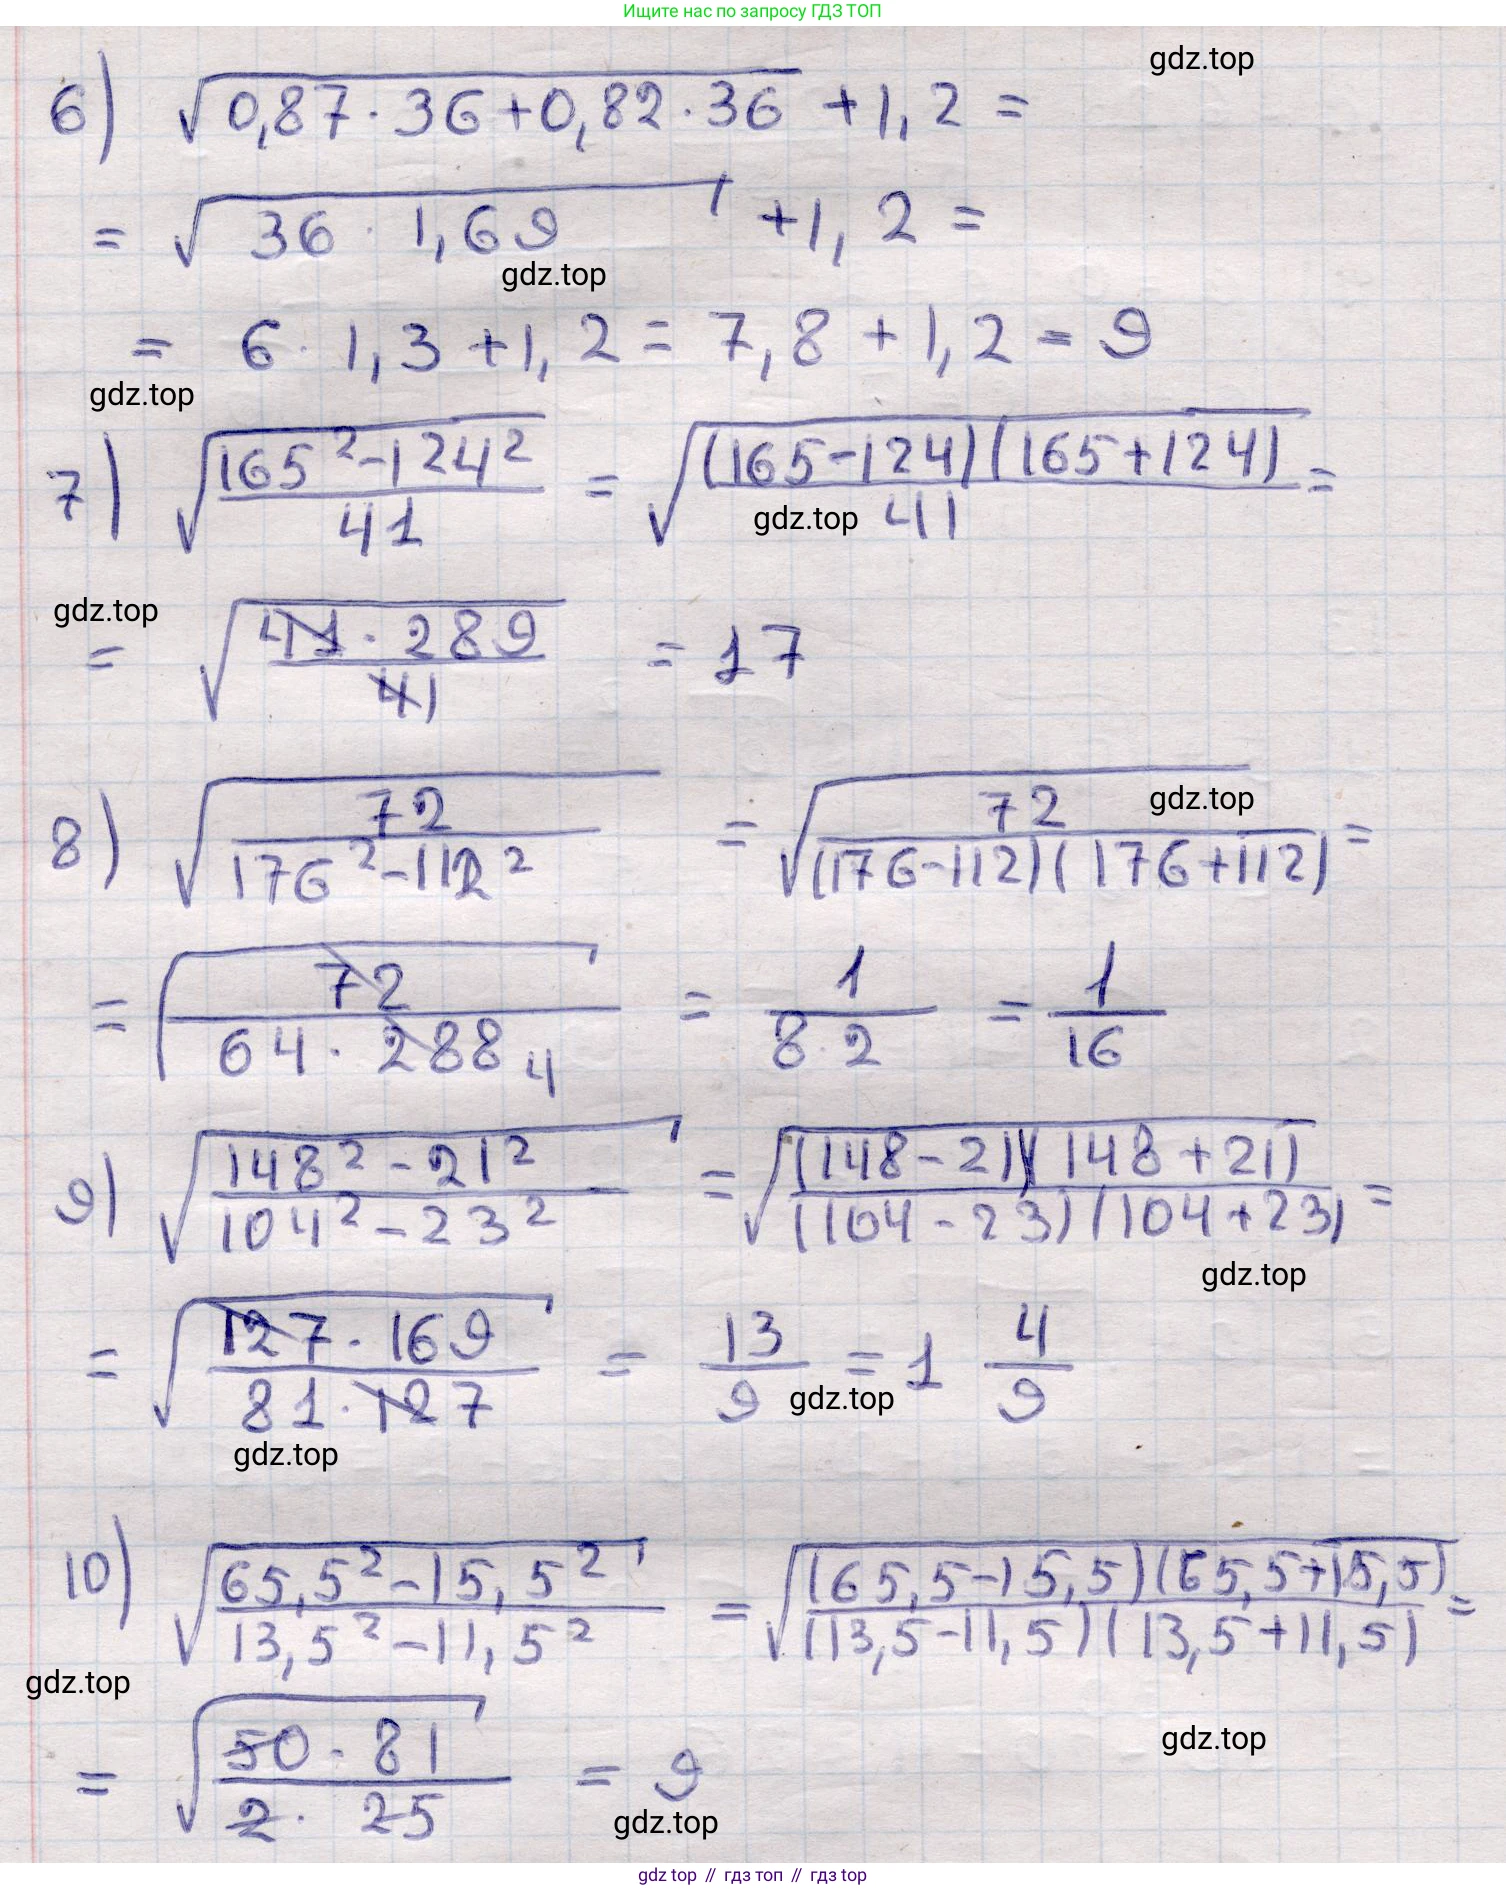 Ищите нас по запросу ГДЗ ТОП
gdz.top
6) √(0,87 · 36 + 0,82 · 36) + 1,2 =
= √(36 · 1,69) + 1,2 =
gdz.top
= 6 · 1,3 + 1,2 = 7,8 + 1,2 = 9
gdz.top
7) √((165² - 124²)/41) = √((165 - 124)(165 + 124)/41) =
gdz.top
gdz.top
= √(41 · 289/41) = 17
8) √(72/(176² - 112²)) = √(72/((176 - 112)(176 + 112))) =
gdz.top
= √(72/(64 · 288 4)) = 1/(8 · 2) = 1/16
9) √((148² - 21²)/(104² - 23²)) = √((148 - 21)(148 + 21)/((104 - 23)(104 + 23))) =
gdz.top
= √(127 · 169/(81 · 127)) = 13/9 = 1 4/9
gdz.top
gdz.top
10) √((65,5² - 15,5²)/(13,5² - 11,5²)) = √((65,5 - 15,5)(65,5 + 15,5)/((13,5 - 11,5)(13,5 + 11,5))) =
gdz.top
gdz.top
= √(50 · 81/(2 · 25)) = 9
gdz.top
gdz top // гдз топ // гдз top